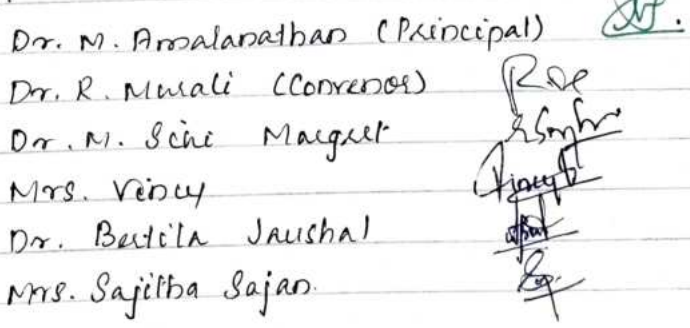 Dr. M. Amalanathan (Principal)
Dr. R. Murali (Convenor)
Dr. M. Sini Margret
Mrs. Vency
Dr. Bertila Jaushal
Mrs. Sajitha Sajan.